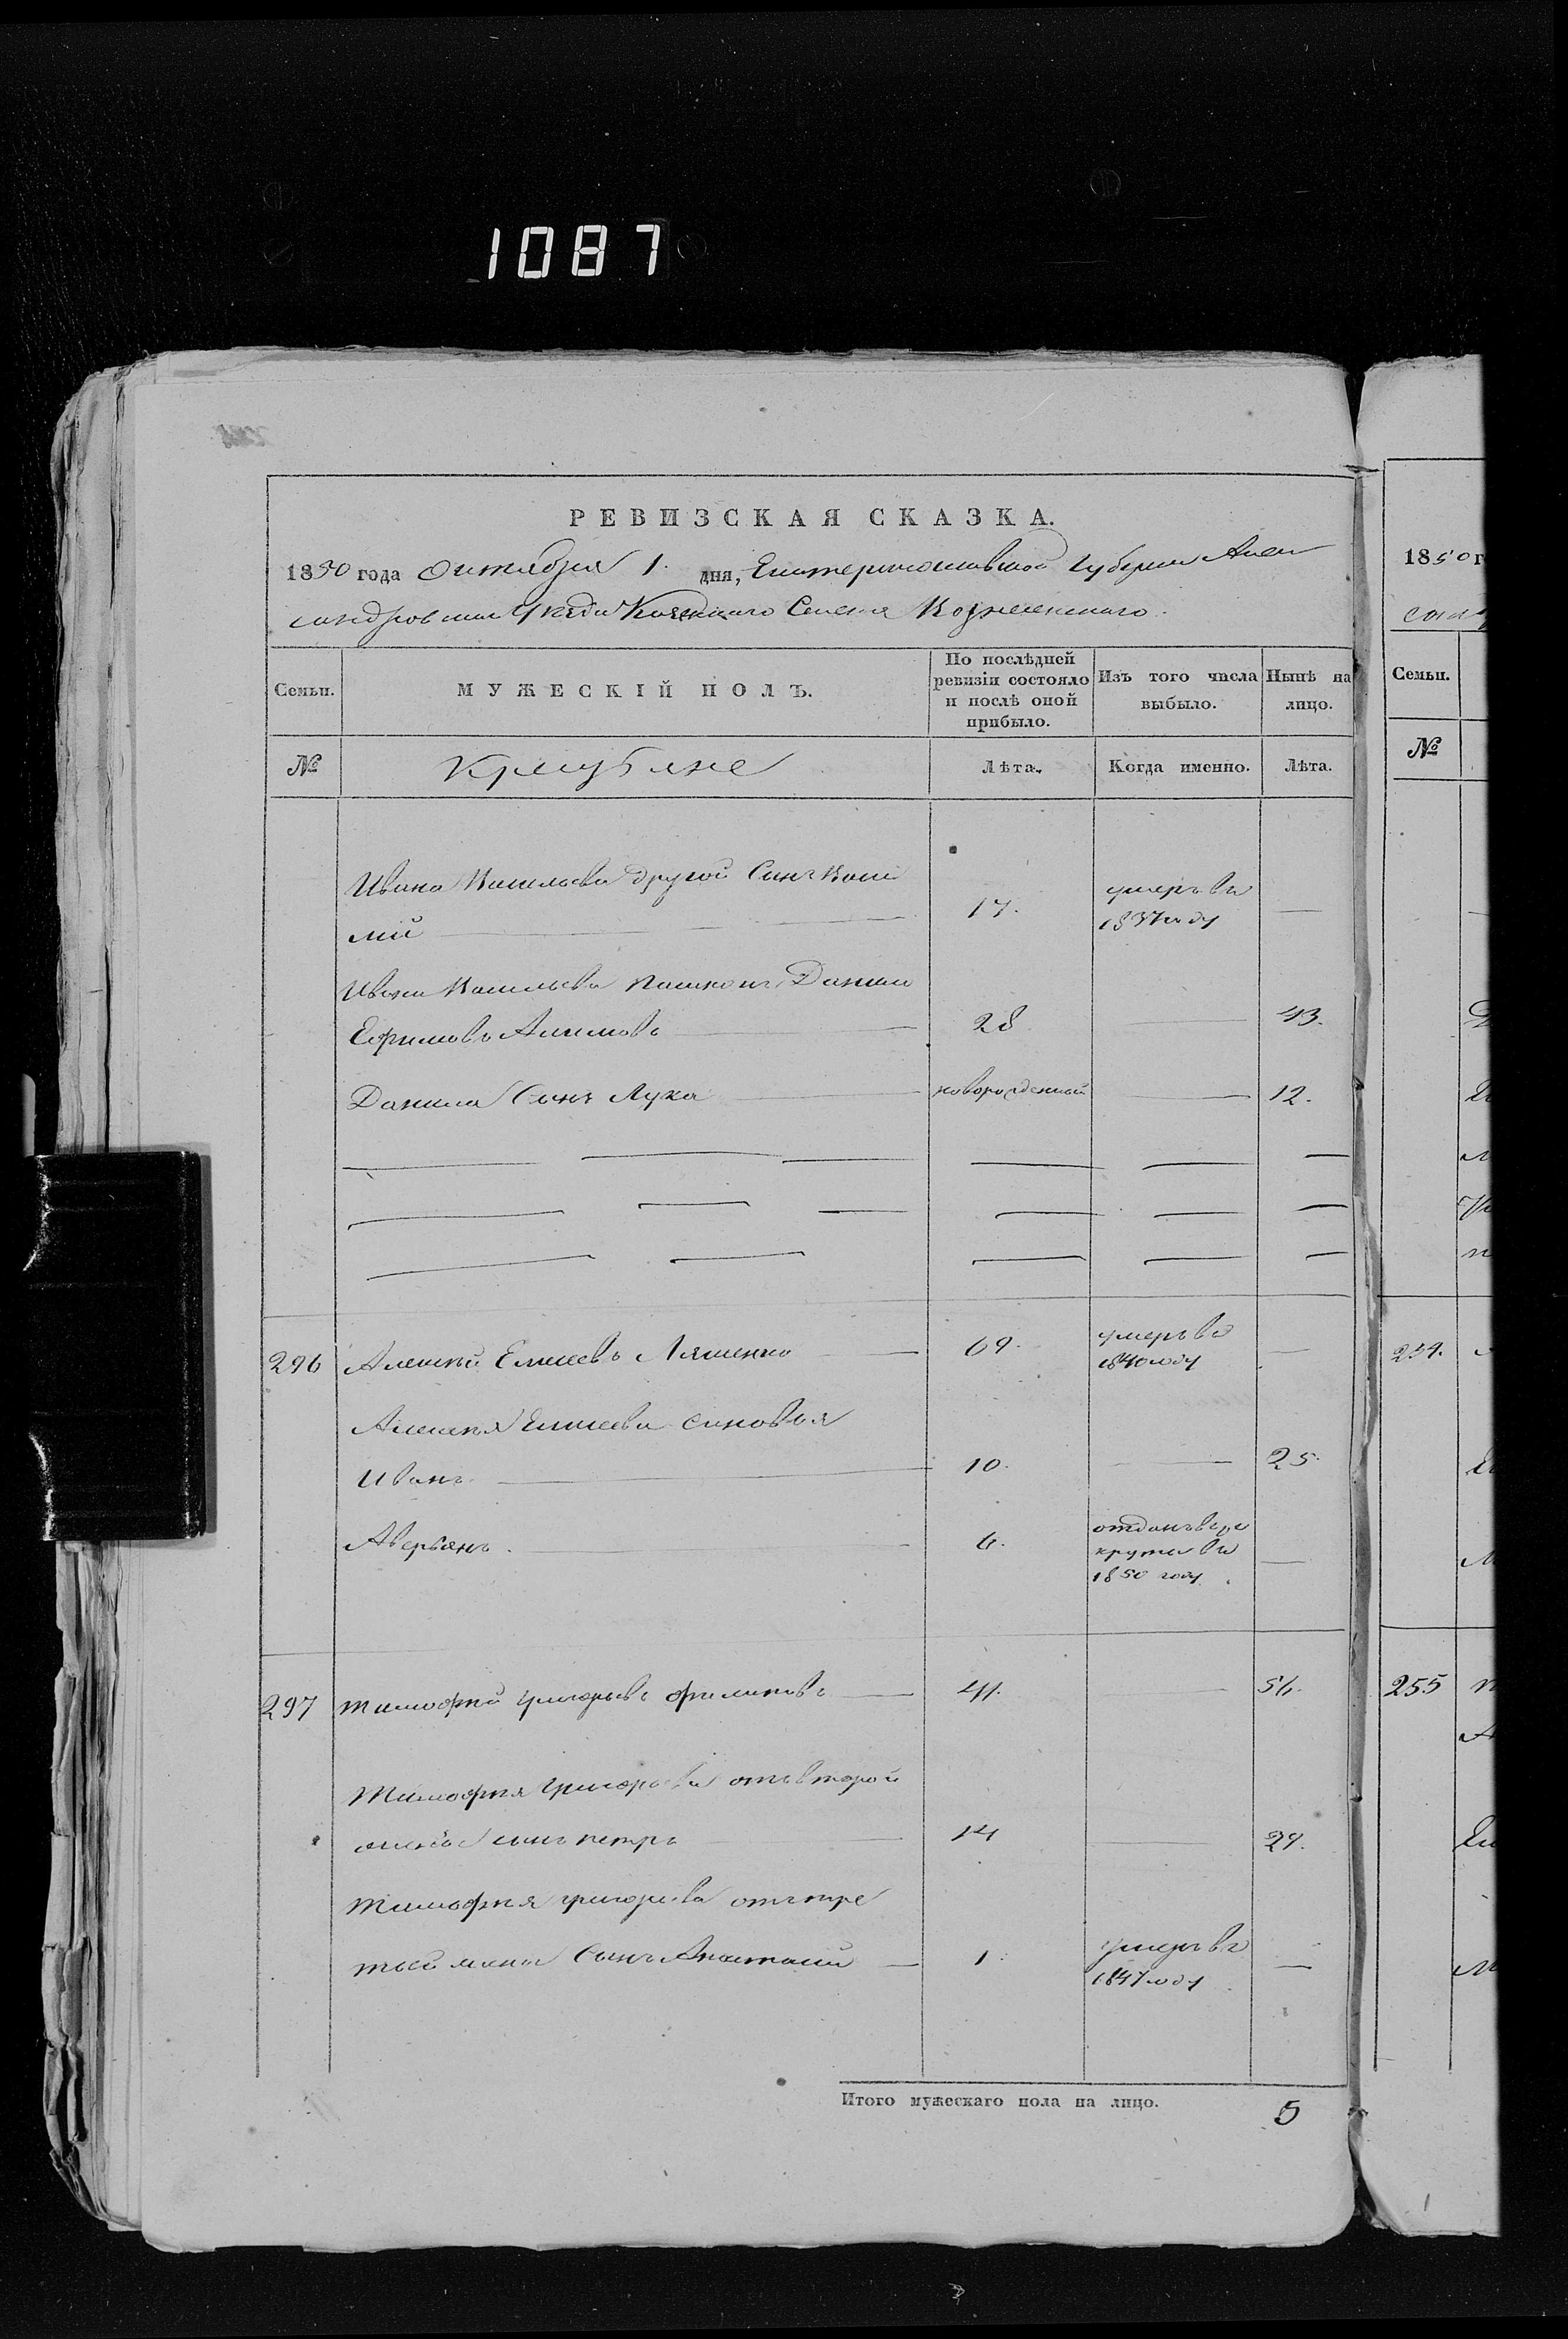 1087
РЕВИЗСКАЯ СКАЗКА.
1850 года Октября 1. дня, Екатеринославской Губерніи Алек
сандровскаго Уезда Казеннаго Селенія Вознесенскаго.
Семьи.
МУЖЕСКІЙ ПОЛЪ.
По послѣдней
ревизіи состояло
и послѣ оной
прибыло.
Изъ того числа
выбыло.
Нынѣ на
лицо.
№
Лѣта.
Когда именно.
Лѣта.
Ивана Васильева другой Синъ Васи
лій 17. умеръ въ 1837 году —
Ивана Васильева Данило
Ефимовъ 28 — 43.
Данила Сынъ Лука новорожденный — 12.
296 Алексѣй Елисеевъ Ляшенко 69. умеръ въ 1840 году —
Алексѣя Елисеева синовья
Иванъ 10. — 25.
Аверьянъ. 6. отданъ въ ре
круты въ
1850 году. —
297 Тимофѣй Григорьевъ Филиповъ 41. — 56.
Тимофѣя Григорьева отъ второй
жены синъ петръ 14 — 29.
Тимофѣя григорьева отъ тре
тьей жены Сынъ Анастасій 1. умеръ въ 1847 году —
Итого мужескаго пола на лицо. 5
1850 г
Семьи.
№
254.
255